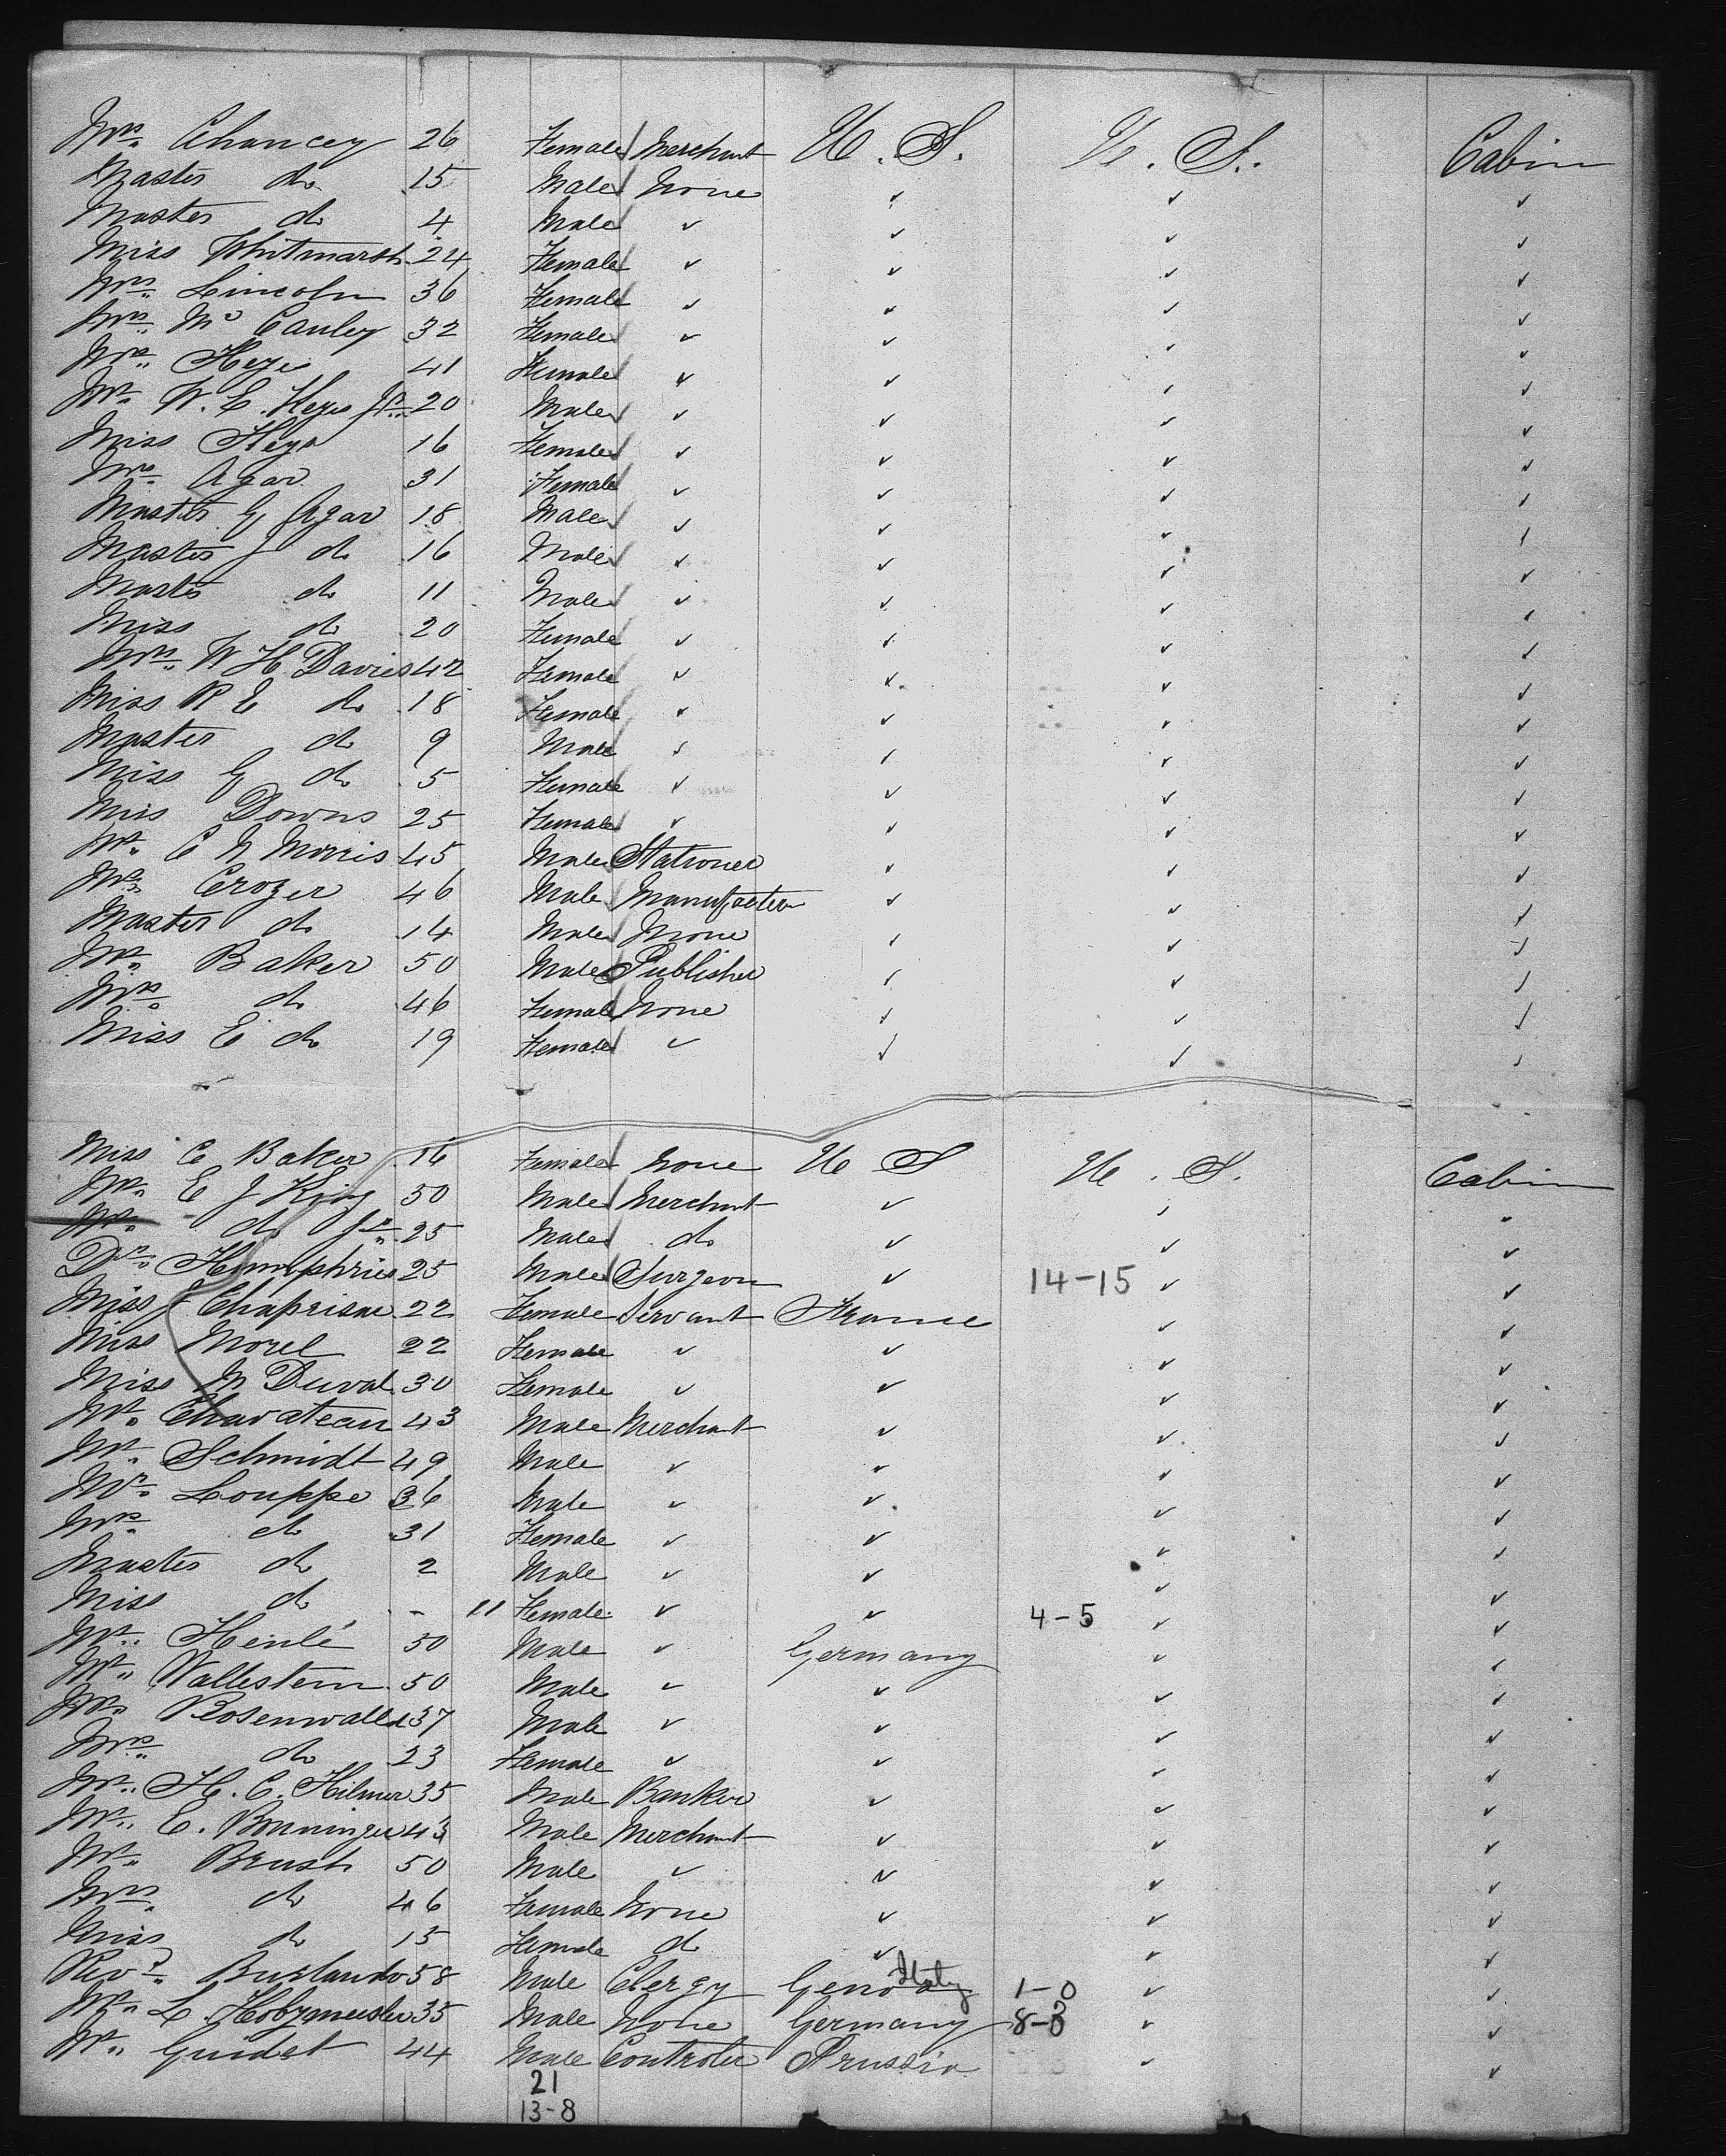 Mrs. Chancey 26 Female Merchant U. S. U. S. Cabin
Master do 15 Male None ✓ ✓ ✓
Master do 4 Male ✓ ✓ ✓ ✓
Miss Whitmarsh 24 Female ✓ ✓ ✓ ✓
Mrs. Lincoln 36 Female ✓ ✓ ✓ ✓
Mrs. Mc Cauley 32 Female ✓ ✓ ✓ ✓
Mrs. Heys 41 Female ✓ ✓ ✓ ✓
Mr. W. E. Heys Jr. 20 Male ✓ ✓ ✓ ✓
Miss Heys 16 Female ✓ ✓ ✓ ✓
Mrs. Agar 31 Female ✓ ✓ ✓ ✓
Master G Agar 18 Male ✓ ✓ ✓ ✓
Master J do 16 Male ✓ ✓ ✓ ✓
Master do 11 Male ✓ ✓ ✓ ✓
Miss do 20 Female ✓ ✓ ✓ ✓
Mrs. W H Davies 42 Female ✓ ✓ ✓ ✓
Miss R E do 18 Female ✓ ✓ ✓ ✓
Master do 9 Male ✓ ✓ ✓ ✓
Miss G do 5 Female ✓ ✓ ✓ ✓
Miss Downs 25 Female ✓ ✓ ✓ ✓
Mr. C N Morris 45 Male Stationer ✓ ✓ ✓
Mr. Crozer 46 Male Manufacter ✓ ✓ ✓
Master do 14 Male None ✓ ✓ ✓
Mr. Baker 50 Male Publisher ✓ ✓ ✓
Mrs. do 46 Female None ✓ ✓ ✓
Miss E do 19 Female ✓ ✓ ✓ ✓
Miss C Baker 16 Female None U S U. S. Cabin
Mr. E J King 50 Male Merchant ✓ ✓ ✓
Mr. do Jr. 25 Male do ✓ ✓ ✓
Dr. Humphries 25 Male Surgeon ✓ 14-15 ✓ ✓
Miss J Chaprisne 22 Female Servant France ✓ ✓
Miss Morel 22 Female ✓ ✓ ✓ ✓
Miss M Duval 30 Female ✓ ✓ ✓ ✓
Mr. Charateau 43 Male Merchant ✓ ✓ ✓
Mr. Schmidt 49 Male ✓ ✓ ✓ ✓
Mr. Louppe 36 Male ✓ ✓ ✓ ✓
Mrs. do 31 Female ✓ ✓ ✓ ✓
Master do 2 Male ✓ ✓ ✓ ✓
Miss do - 11 Female ✓ ✓ 4-5 ✓ ✓
Mr. Henlé 50 Male ✓ Germany ✓ ✓
Mr. Wallestein 50 Male ✓ ✓ ✓ ✓
Mr. Rosenwald 37 Male ✓ ✓ ✓ ✓
Mrs. do 23 Female ✓ ✓ ✓ ✓
Mr. H. C. Hilmer 35 Male Banker ✓ ✓ ✓
Mr. E. Bruninger 43 Male Merchant ✓ ✓ ✓
Mr. Brush 50 Male ✓ ✓ ✓ ✓
Mrs. do 46 Female None ✓ ✓ ✓
Miss do 15 Female do ✓ ✓ ✓
Revd. 58 Male Clergy Genoa Italy 1-0 ✓ ✓
Mr. L. 35 Male None Germany 8-8 ✓ ✓
Mr. Guidet 44 Male Controler Prussia ✓ ✓
21
13-8